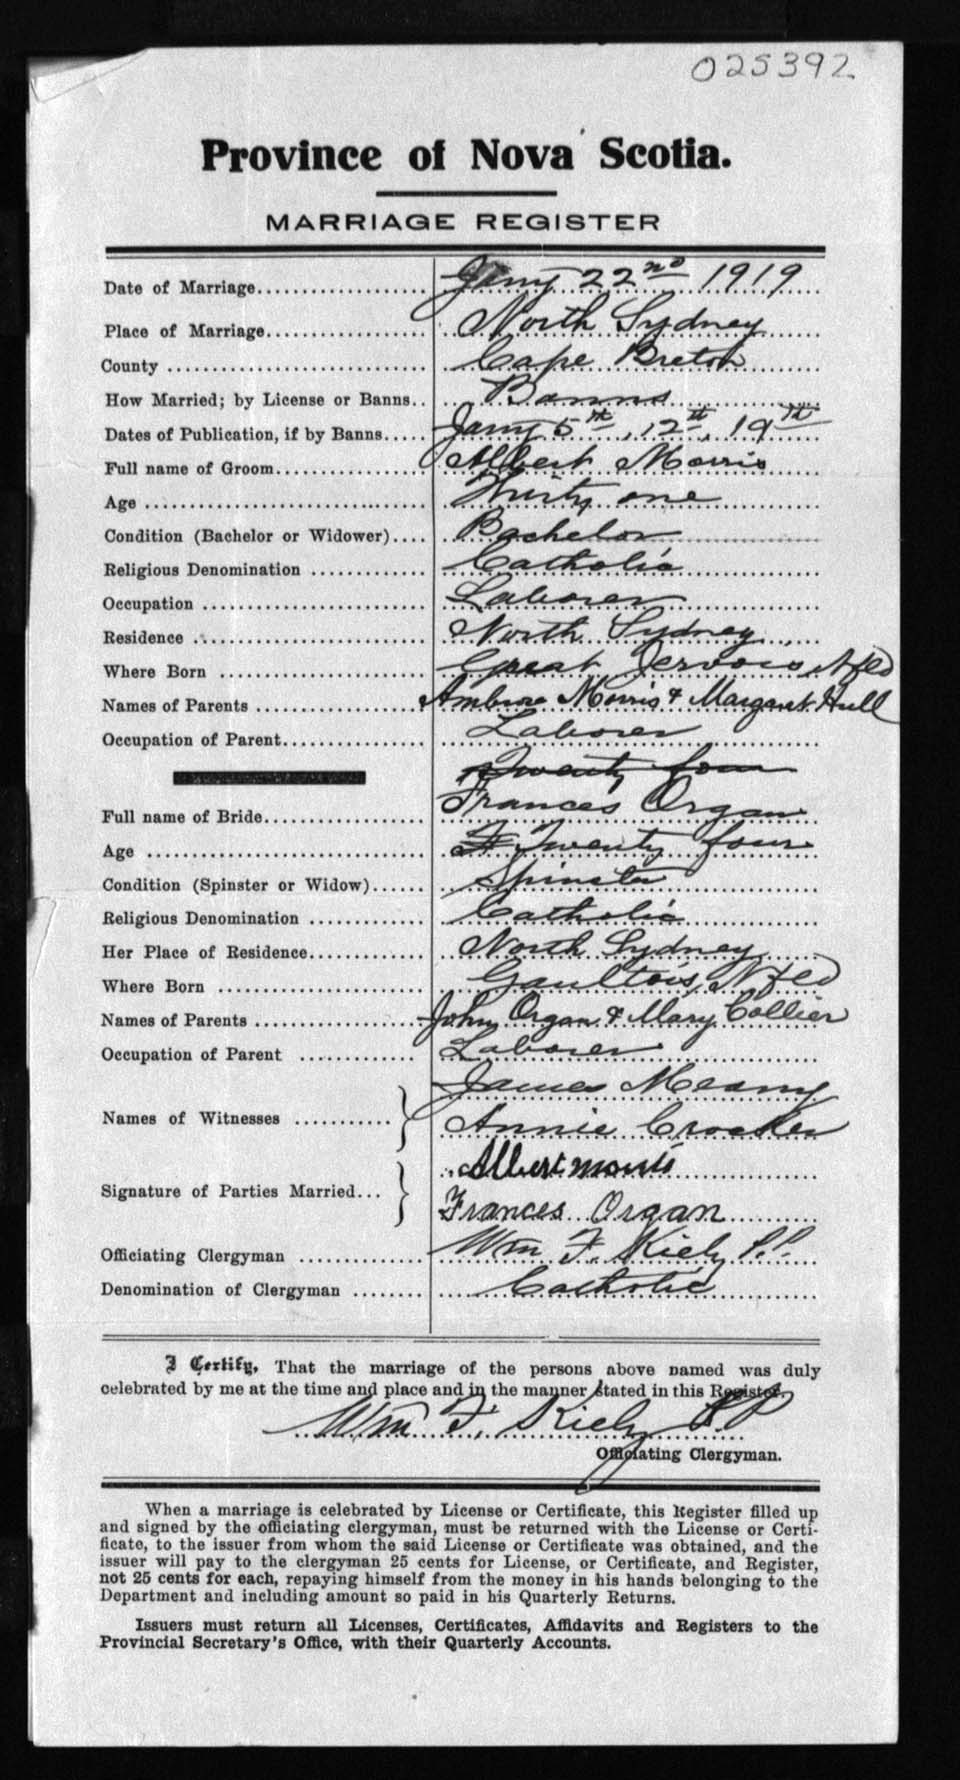 025392
Province of Nova Scotia.
MARRIAGE REGISTER
Date of Marriage.................... Jany 22nd 1919
Place of Marriage................... North Sydney
County ............................. Cape Breton
How Married; by License or Banns.. Banns
Dates of Publication, if by Banns..... Jany 5th, 12th, 19th
Full name of Groom.................. Albert Morris
Age ................................ Thirty one
Condition (Bachelor or Widower).... Bachelor
Religious Denomination ............. Catholic
Occupation ......................... Laborer
Residence .......................... North Sydney
Where Born ......................... Great Jervois, Nfld
Names of Parents ................... Ambrose Morris & Margaret Hull
Occupation of Parent................ Laborer
Twenty four
Full name of Bride.................. Frances Organ
Age ................................ Twenty four
Condition (Spinster or Widow)...... Spinster
Religious Denomination ............. Catholic
Her Place of Residence............. North Sydney
Where Born ......................... Gaultois, Nfld
Names of Parents ................... John Organ & Mary Collier
Occupation of Parent ............. Laborer
James Meany
Names of Witnesses ...........
Annie Crocker
Albert Morris
Signature of Parties Married...
Frances Organ
Officiating Clergyman .............. Wm F. Kiely P.P.
Denomination of Clergyman ........ Catholic
I Certify, That the marriage of the persons above named was duly
celebrated by me at the time and place and in the manner stated in this Register.
Wm F. Kiely P.P
Officiating Clergyman.
When a marriage is celebrated by License or Certificate, this Register filled up
and signed by the officiating clergyman, must be returned with the License or Certi-
ficate, to the issuer from whom the said License or Certificate was obtained, and the
issuer will pay to the clergyman 25 cents for License, or Certificate, and Register,
not 25 cents for each, repaying himself from the money in his hands belonging to the
Department and including amount so paid in his Quarterly Returns.
Issuers must return all Licenses, Certificates, Affidavits and Registers to the
Provincial Secretary's Office, with their Quarterly Accounts.